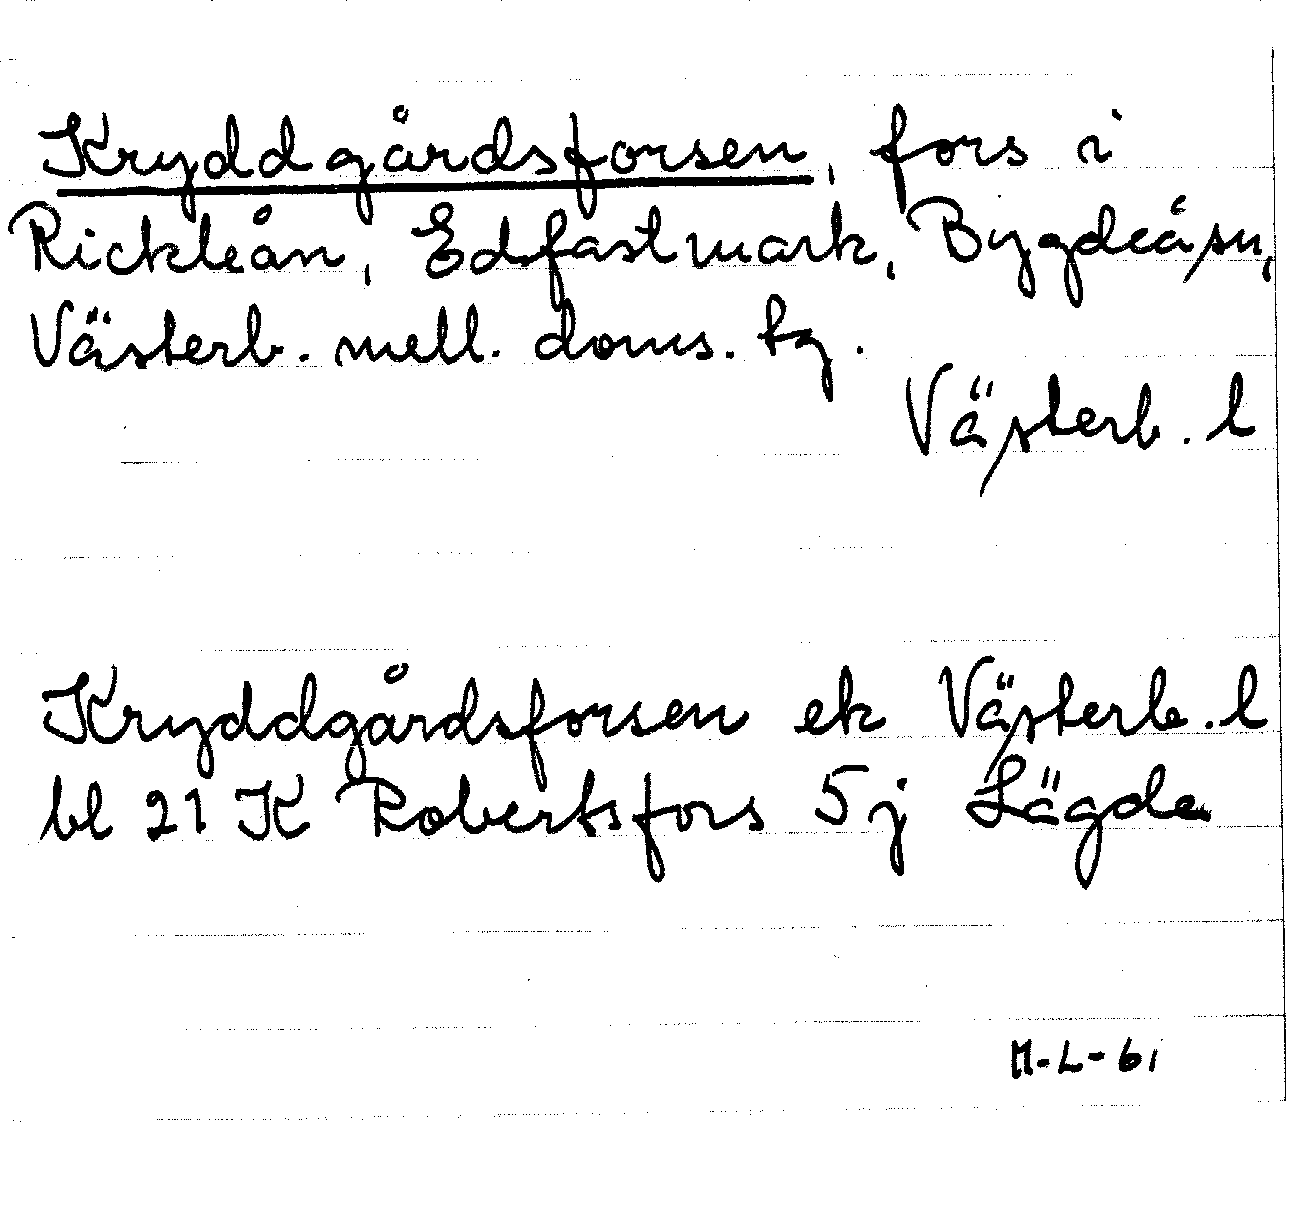 Kryddgårdsforsen, fors i
Rickleån, Edfastmark, Bygdeå sn,
Västerb. mell. doms. tg.
Västerb. l
Kryddgårdsforsen ek Västerb. l
bl 21 K Robertsfors 5j Lägde
M-L-61